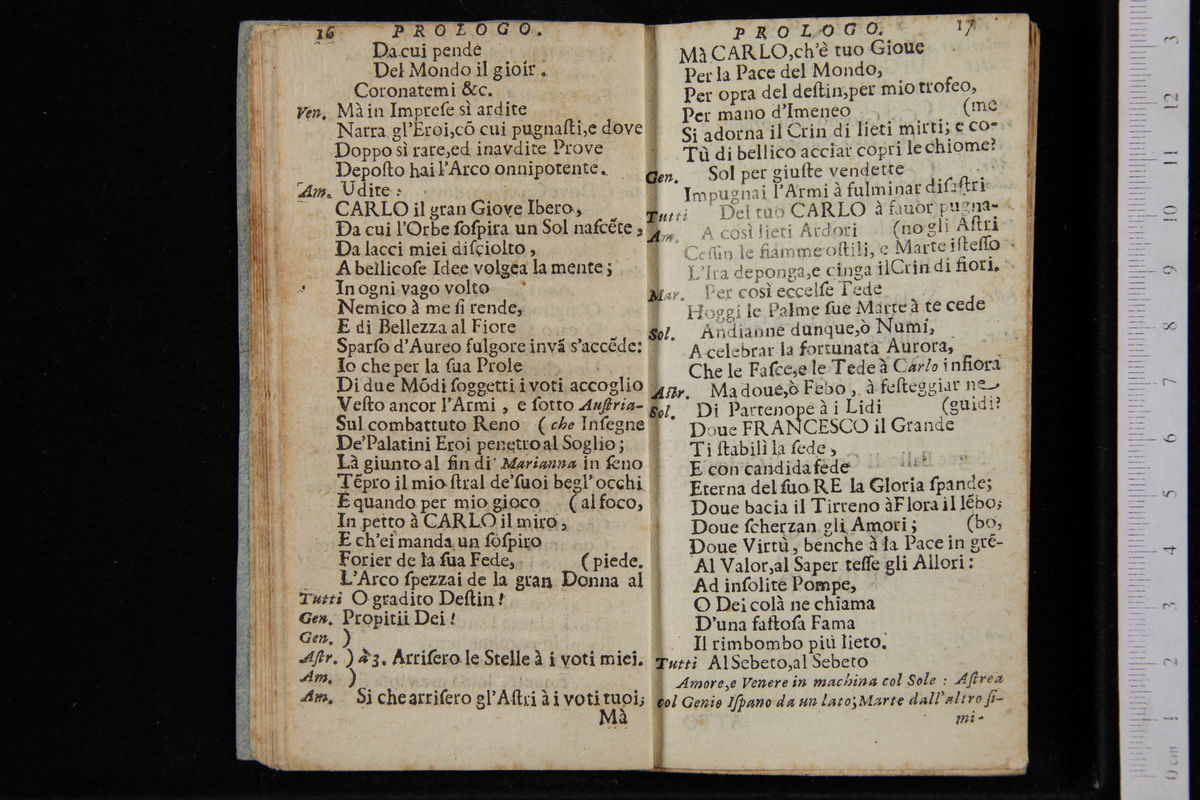 16 PROLOGO.
Da cui pende
Del Mondo il gioir.
Coronatemi &c.
Ven. Mà in Impreſe sì ardite
Narra gl'Eroi,cõ cui pugnaſti,e dove
Doppo sì rare,ed inavdite Prove
Depoſto hai l'Arco onnipotente.
Am. Udite:
CARLO il gran Giove Ibero,
Da cui l'Orbe ſoſpira un Sol naſcẽte,
Da lacci miei diſciolto,
A bellicoſe Idee volgea la mente;
In ogni vago volto
Nemico à me ſi rende,
E di Bellezza al Fiore
Sparſo d'Aureo fulgore invã s'accẽde:
Io che per la ſua Prole
Di due Mõdi ſoggetti i voti accoglio
Veſto ancor l'Armi, e ſotto Auſtria-
Sul combattuto Reno (che Inſegne
De'Palatini Eroi penetro al Soglio;
Là giunto al fin di Marianna in ſeno
Tẽpro il mio ſtral de'ſuoi begl'occhi
E quando per mio gioco (al foco,
In petto à CARLO il miro,
E ch'ei manda un ſoſpiro
Forier de la ſua Fede, (piede.
L'Arco ſpezzai de la gran Donna al
Tutti O gradito Deſtin!
Gen. Propitii Dei!
Gen. )
Aſtr. ) à 3. Arriſero le Stelle à i voti miei.
Am. )
Am. Si che arriſero gl'Aſtri à i voti tuoi;
Mà
PROLOGO. 17
Mà CARLO,ch'è tuo Gioue
Per la Pace del Mondo,
Per opra del deſtin,per mio trofeo,
Per mano d'Imeneo (me
Si adorna il Crin di lieti mirti; e co-
Tù di bellico acciar copri le chiome?
Gen. Sol per giuſte vendette
Impugnai l'Armi à fulminar diſaſtri
Tutti Del tuo CARLO à fauor pugna-
Am. A così lieti Ardori (no gli Aſtri
Ceſſin le fiamme oſtili, e Marte iſteſſo
L'Ira deponga,e cinga il Crin di fiori.
Mar. Per così eccelſe Tede
Hoggi le Palme ſue Marte à te cede
Sol. Andianne dunque,ò Numi,
A celebrar la fortunata Aurora,
Che le Faſce,e le Tede à Carlo infiora
Aſtr. Ma doue,ò Febo, à feſteggiar ne
Sol. Di Partenope à i Lidi (guidi?
Doue FRANCESCO il Grande
Ti ſtabilì la ſede,
E con candida fede
Eterna del ſuo RE la Gloria ſpande;
Doue bacia il Tirreno à Flora il lẽbo;
Doue ſcherzan gli Amori; (bo,
Doue Virtù, benche à la Pace in grẽ-
Al Valor,al Saper teſſe gli Allori:
Ad inſolite Pompe,
O Dei colà ne chiama
D'una faſtoſa Fama
Il rimbombo più lieto.
Tutti Al Sebeto,al Sebeto
Amore,e Venere in machina col Sole: Aſtrea
col Genio Iſpano da un lato;Marte dall'altro ſi-
mi-
0 cm 1 2 3 4 5 6 7 8 9 10 11 12 3